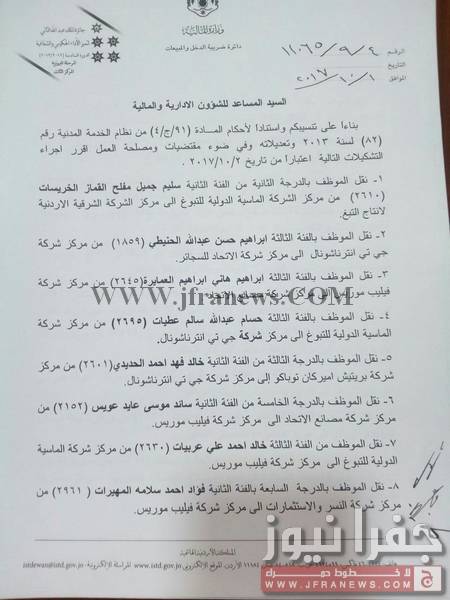 وزارة المالية
دائرة ضريبة الدخل والمبيعات
جائزة الملك عبدالله الثاني
لتميز الأداء الحكومي والشفافية
المركز الثالث
الرقم ١١٠٦٥/٩/٤
التاريخ
الموافق ٢٠١٧/١٠/١
السيد المساعد للشؤون الادارية والمالية
بناءا على تنسيبكم واستنادا لأحكام المادة (٩١/ج/٤) من نظام الخدمة المدنية رقم
(٨٢) لسنة ٢٠١٣ وتعديلاته وفي ضوء مقتضيات ومصلحة العمل اقرر اجراء
التشكيلات التالية اعتبارا من تاريخ ٢٠١٧/١٠/٢.
١- نقل الموظف بالدرجة الثانية من الفئة الثانية سليم جميل مفلح القماز الخريسات
(٢٦١٠) من مركز الشركة الماسية الدولية للتبوغ الى مركز الشركة الشرقية الاردنية
لانتاج التبغ.
٢- نقل الموظف بالفئة الثالثة ابراهيم حسن عبدالله الحنيطي (١٨٥٩) من مركز شركة
جي تي انترناشونال الى مركز شركة الاتحاد للسجائر.
٣- نقل الموظف بالفئة الثالثة ابراهيم هاني ابراهيم العمايرة (٢٦٤٥) من مركز شركة
فيليب موريس الى مركز شركة مصانع الاتحاد.
٤- نقل الموظف بالفئة الثالثة حسام عبدالله سالم عطيات (٢٦٩٥) من مركز شركة
الماسية الدولية للتبوغ الى مركز شركة جي تي انترناشونال.
٥- نقل الموظف بالدرجة الثالثة من الفئة الثانية خالد فهد احمد الحديدي (٢٦٠١) من مركز
شركة بريتيش اميركان توباكو إلى مركز شركة جي تي انترناشونال.
٦- نقل الموظف بالدرجة الخامسة من الفئة الثانية سائد موسى عايد عويس (٢١٥٢) من
مركز شركة مصانع الاتحاد الى مركز شركة فيليب موريس.
٧- نقل الموظف من الفئة الثالثة خالد احمد علي عربيات (٢٦٣٠) من مركز شركة الماسية
الدولية للتبوغ الى مركز شركة فيليب موريس.
٨- نقل الموظف بالدرجة السابعة بالفئة الثانية فؤاد احمد سلامه المهيرات (٢٩٦١) من
مركز شركة النسر والاستثمارات الى مركز شركة فيليب موريس.
WWW.JFRANEWS.COM
www.jfranews.com
المملكة الأردنية الهاشمية
الاردن الموقع الإلكتروني www.istd.gov.jo المراسلة الإلكترونية istdewan@istd.gov.jo
جفرا نيوز